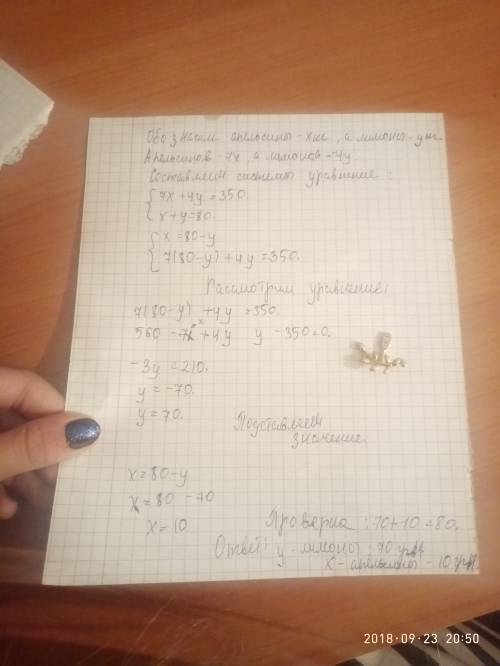 Обозначим апельсины - x кг, а лимоны - y кг.
Апельсинов - 7x, а лимонов - 4y.
Составляем системы уравнение:
{ 7x + 4y = 350.
x + y = 80.
{ x = 80 - y
7(80 - y) + 4y = 350.
Рассмотрим уравнение:
7(80 - y) + 4y = 350.
560 - 7 + 4y y - 350 = 0.
-3y = 210.
y = -70.
y = 70.
Подставляем
значение
x = 80 - y
x = 80 - 70
x = 10
Проверка: 70 + 10 = 80.
Ответ: y - лимоны: 70
x - апельсины - 10
2018-09-23 20:50